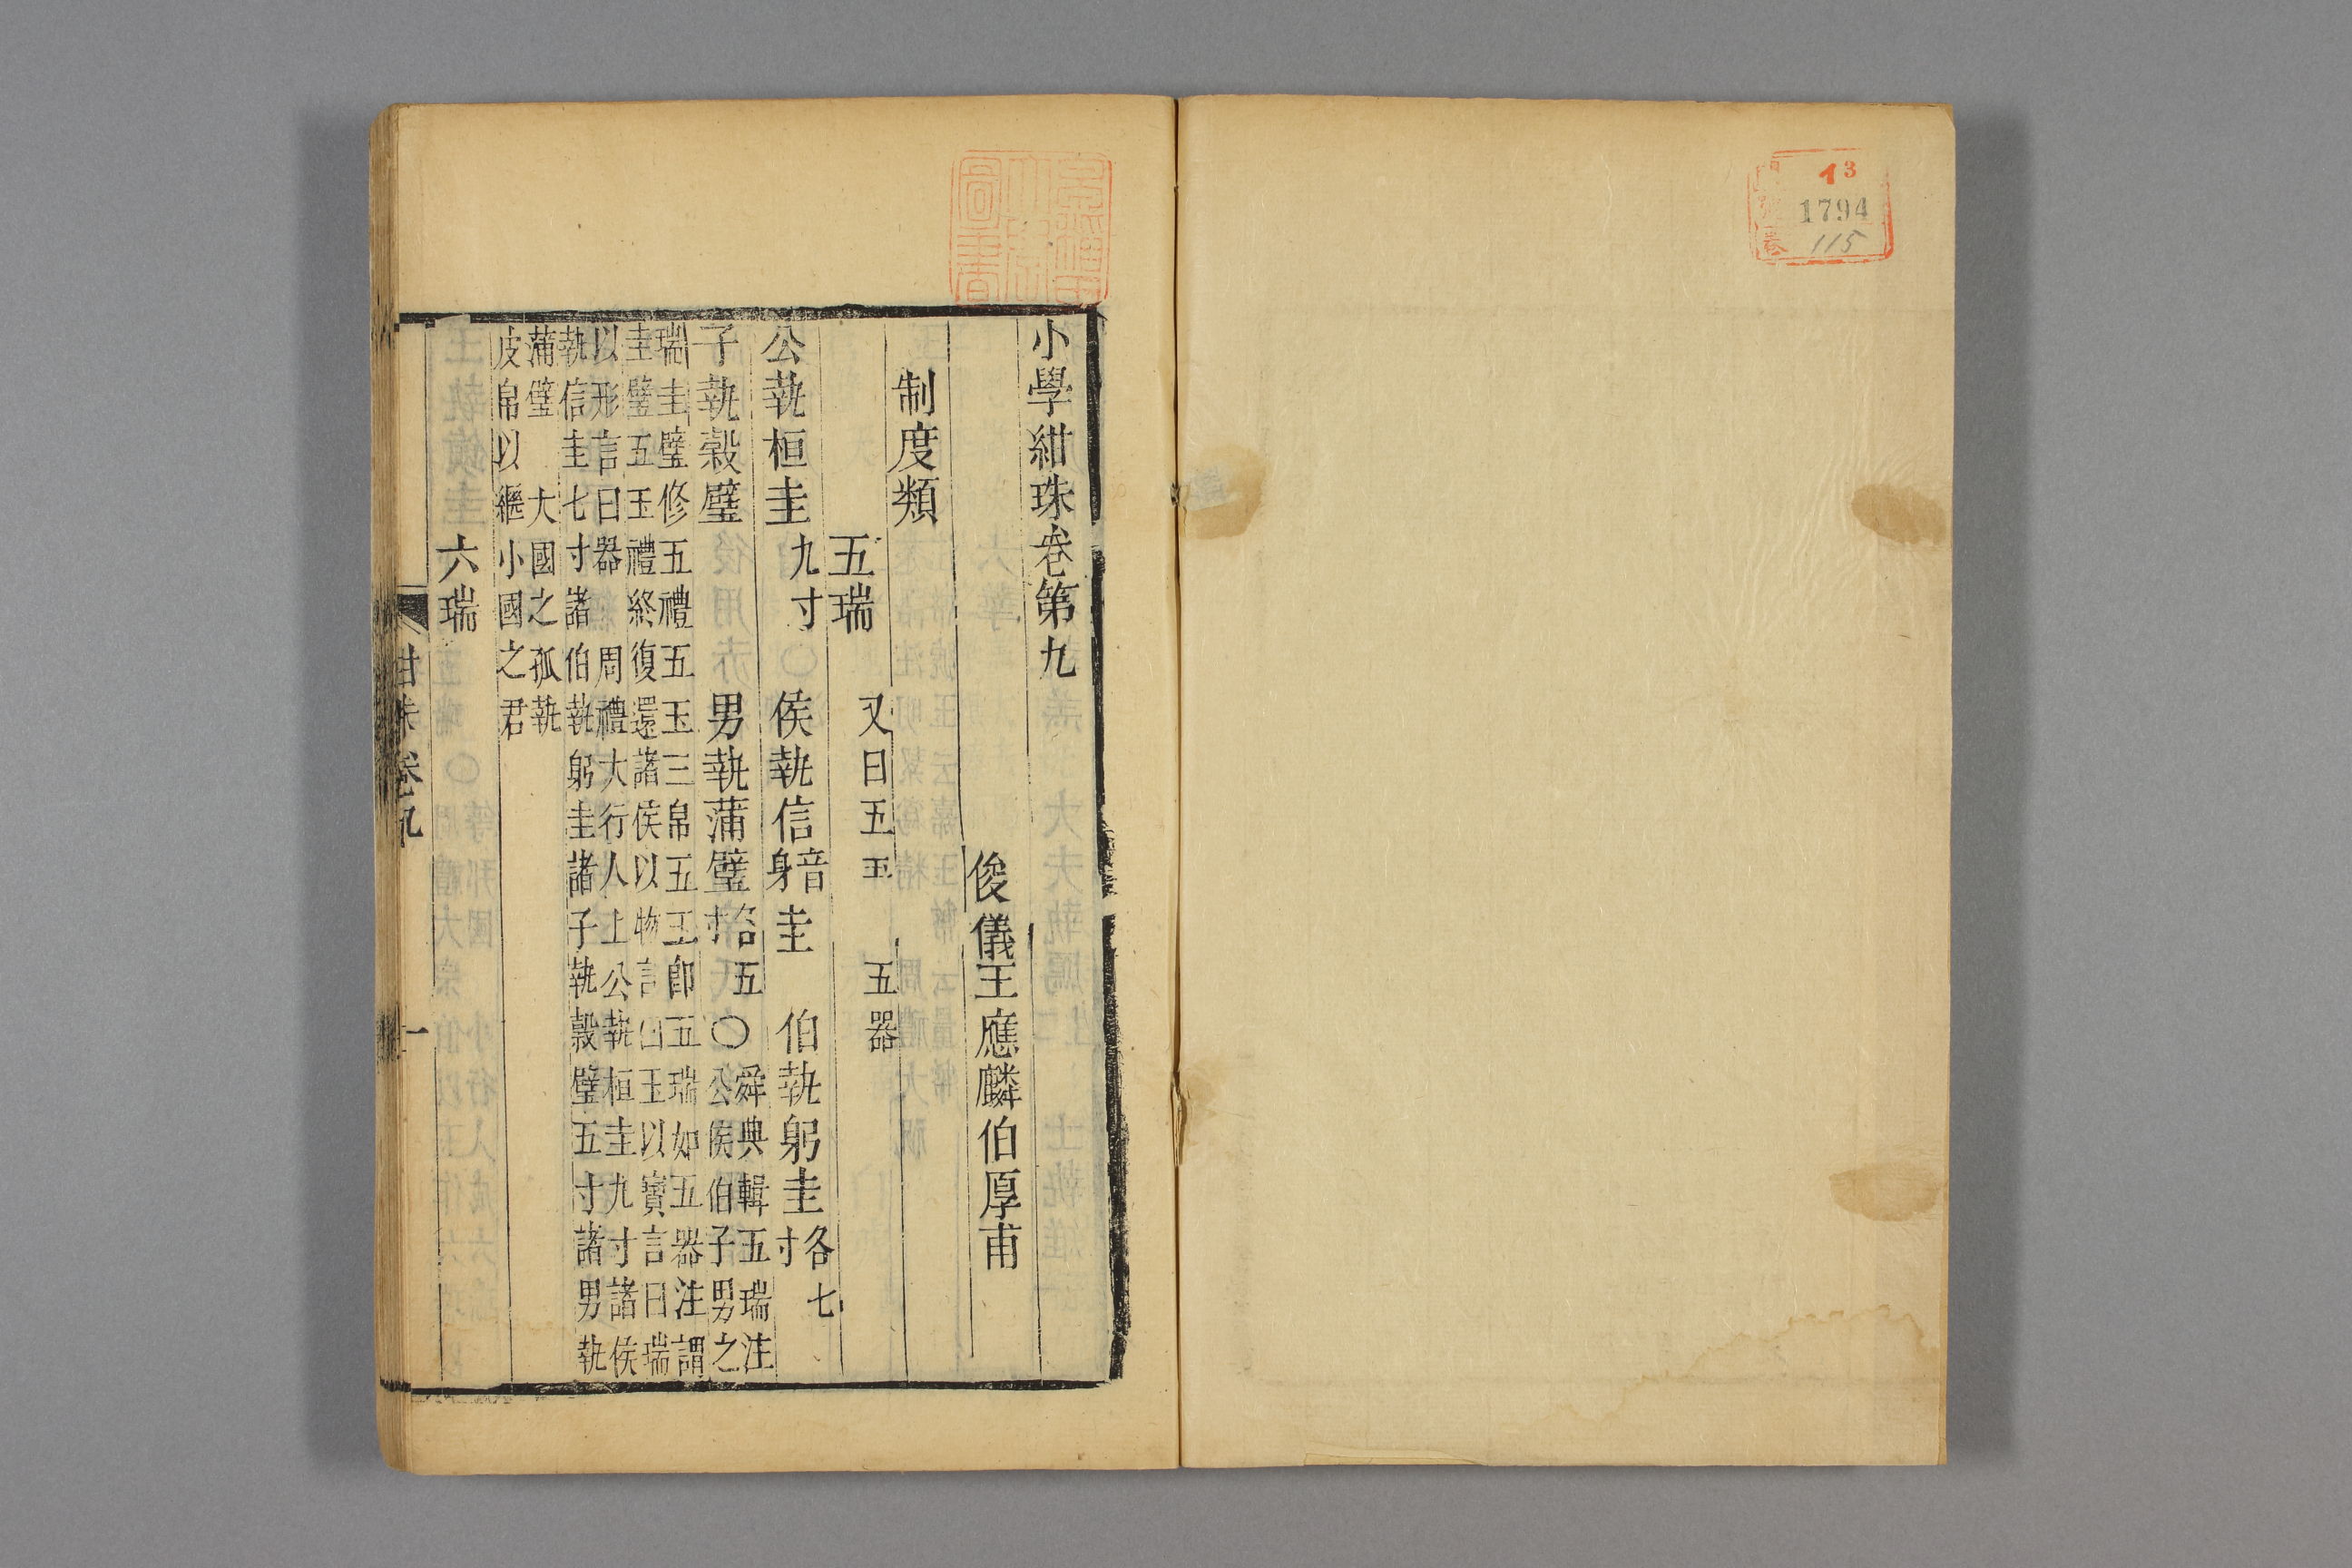 門 13
號 1794
卷 115
早稻田大學圖書
小學紺珠卷第九
俊儀王應麟伯厚甫
制度類
五瑞 又曰五玉 五器
公執桓圭九寸 侯執信音身圭 伯執躬圭各七寸
子執榖璧 男執蒲璧各五寸○舜典輯五瑞注公侯伯子男之
瑞圭璧修五禮五玉三帛五玉即五瑞如五器注謂
圭璧五玉禮終復還諸侯以物言曰玉以寶言曰瑞
以形言曰器 周禮大行人上公執桓圭九寸諸侯
執信圭七寸諸伯執躬圭諸子執榖璧五寸諸男執
蒲璧 大國之孤執
皮帛以繼小國之君
六瑞
紺珠卷九 一